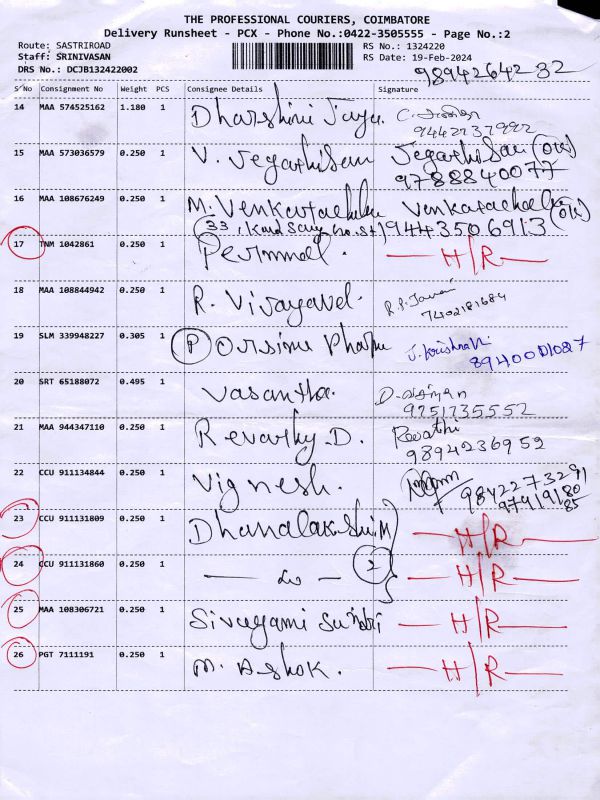 THE PROFESSIONAL COURIERS, COIMBATORE
Delivery Runsheet - PCX - Phone No.:0422-3505555 - Page No.:2
Route: SASTRIROAD RS No.: 1324220
Staff: SRINIVASAN RS Date: 19-Feb-2024
DRS No.: DCJB132422002 9894264232
S/No Consignment No Weight PCS Consignee Details Signature
14 MAA 574525162 1.180 1 Dharshini Jaya
9442737992
15 MAA 573036579 0.250 1 V. Jegathisan Jegathisan (Ow)
9788840077
16 MAA 108676249 0.250 1 M. Venkatachalu Venkatachal (Ow)
9443506913
17 TNM 1042861 0.250 1 Perumal. H/R
18 MAA 108844942 0.250 1 R. Vijayavel.
7402181684
19 SLM 339948227 0.305 1 (P) J. Krishnan
20 SRT 65188072 0.495 1 Vasantha.
9751735552
21 MAA 944347110 0.250 1 Revathy. D. Revathi
9894236952
22 CCU 911134844 0.250 1 Vignesh.
23 CCU 911131809 0.250 1 Dhanalakshmi H/R
24 CCU 911131860 0.250 1 2 H/R
25 MAA 108306721 0.250 1 Sivagami Sundari H/R
26 PGT 7111191 0.250 1 M. Ashok. H/R